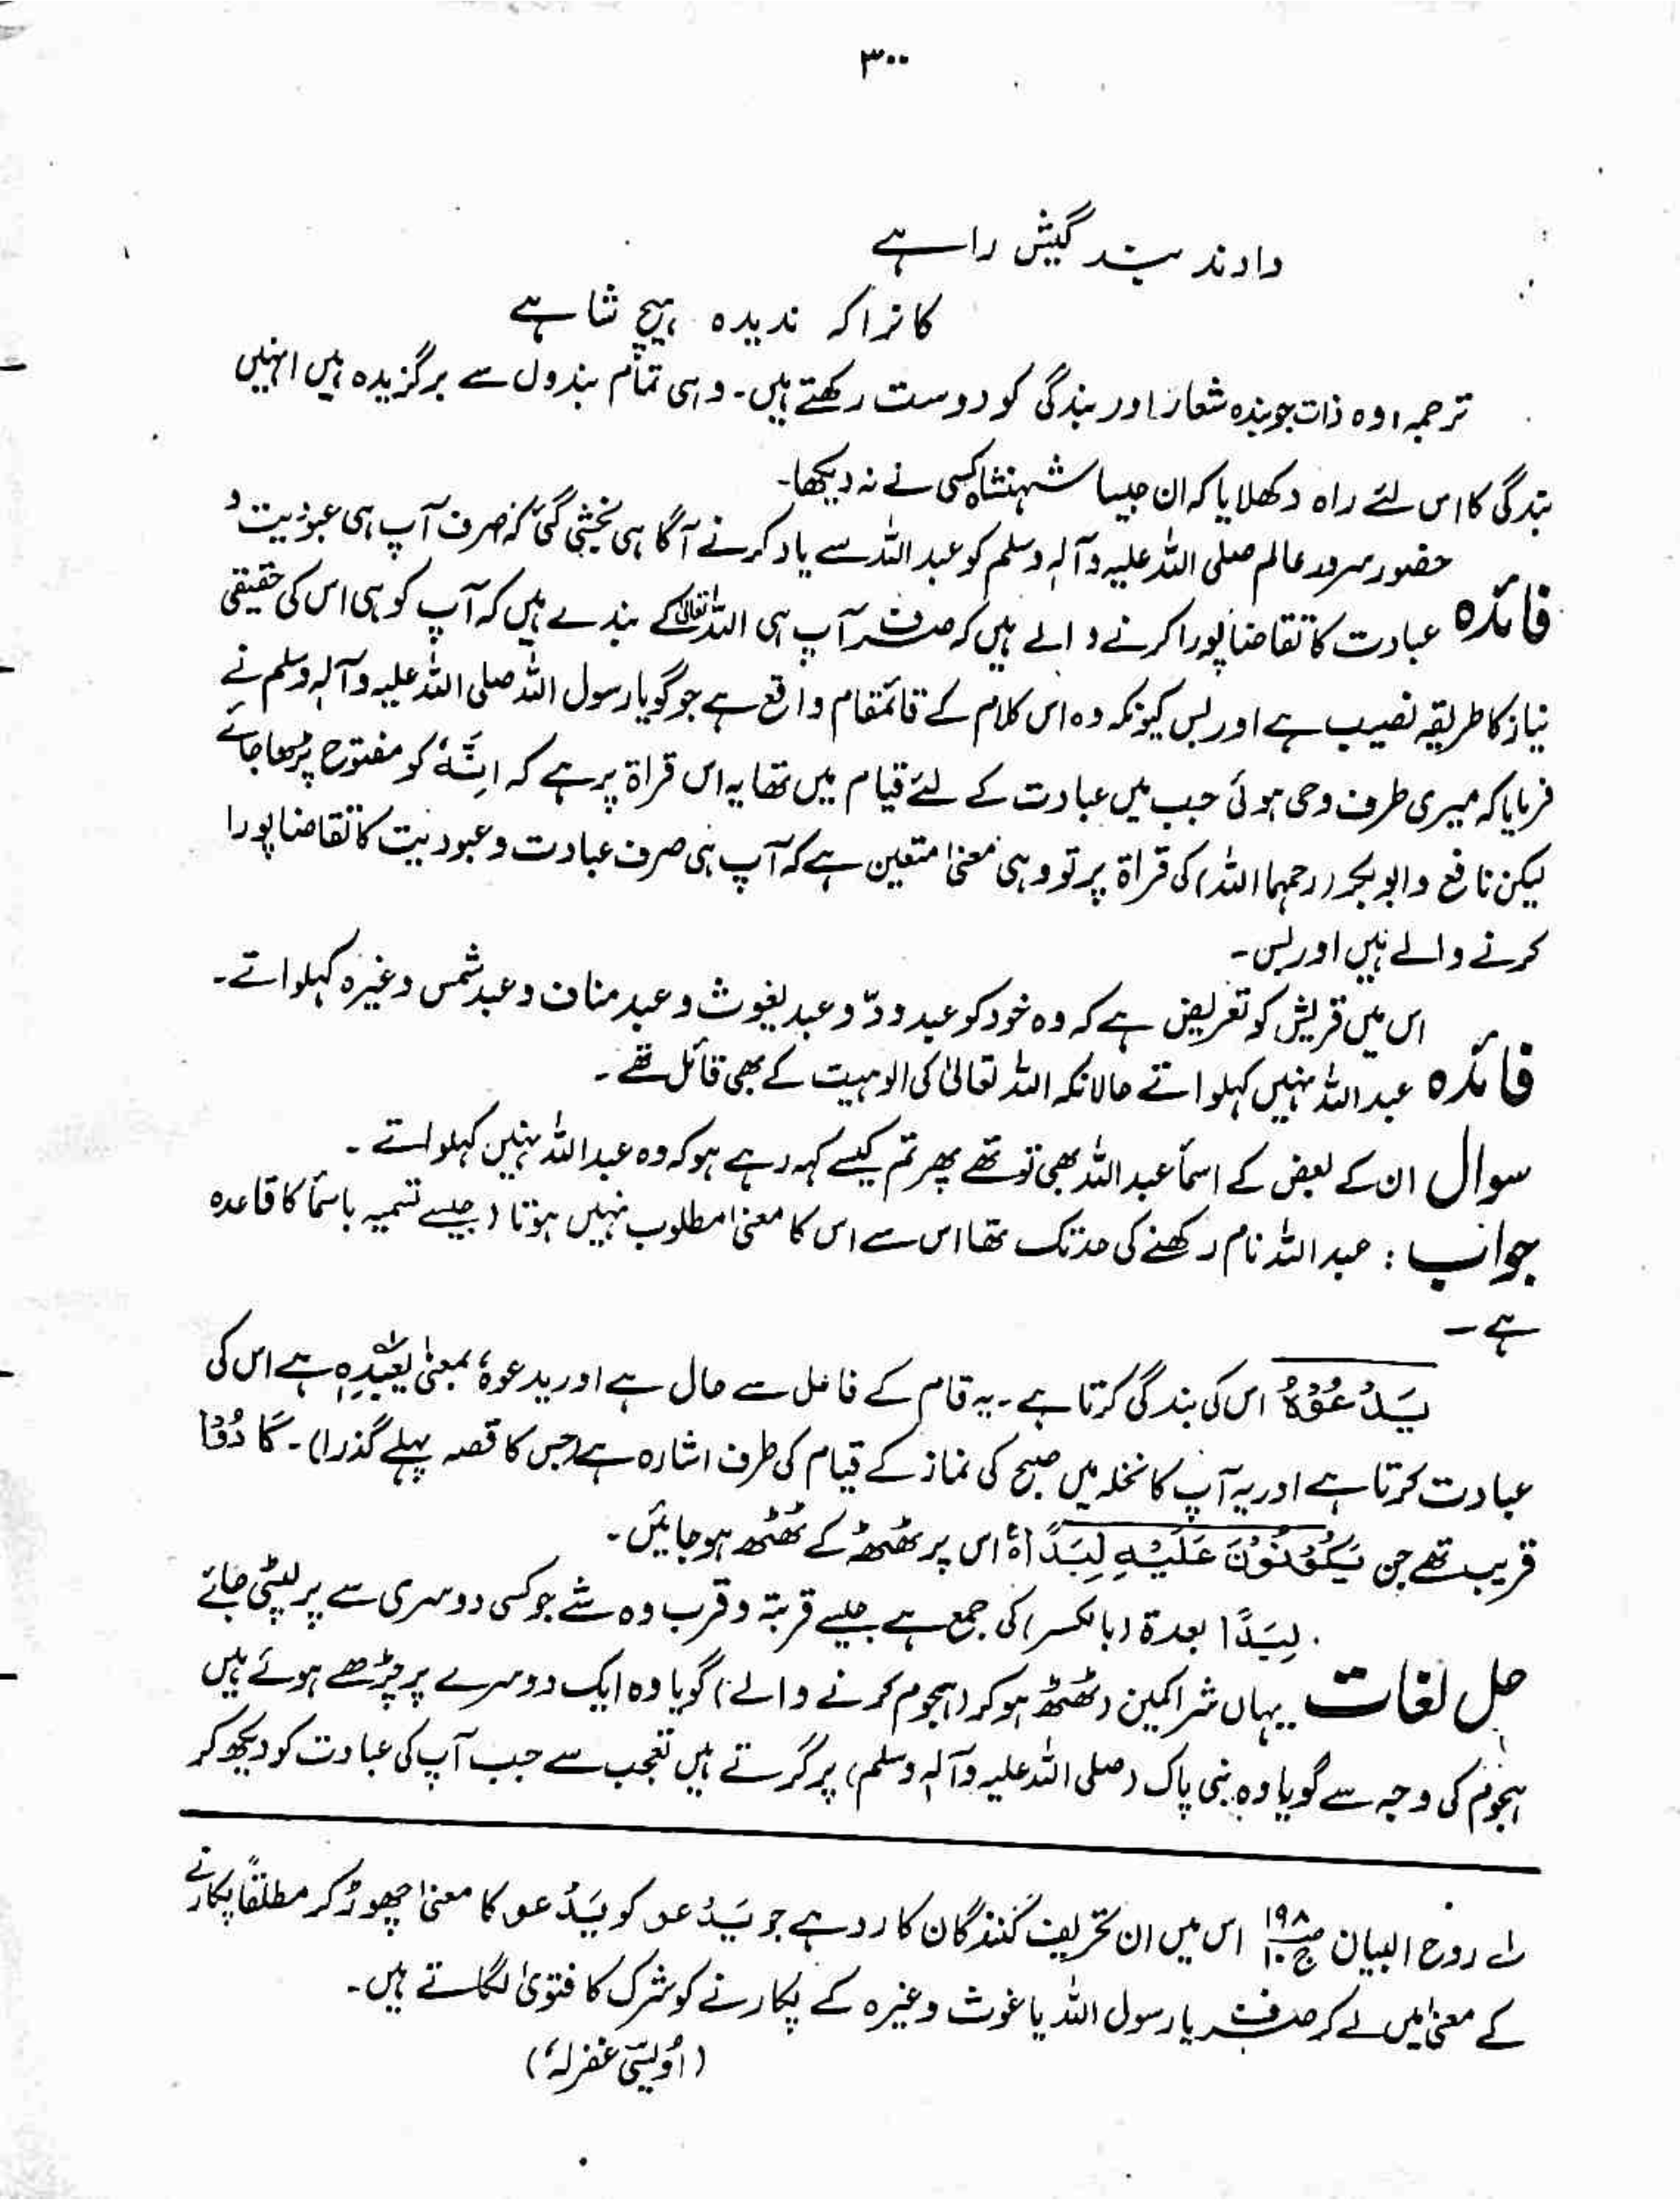 ۳۰۰
دادند بندگیش راہے
کانراکہ ندیدہ ہیچ شاہے
ترجمہ، وہ ذات جو بندہ شعار اور بندگی کو دوست رکھتے ہیں۔ وہی تمام بندوں سے برگزیدہ ہیں انہیں
بندگی کا اس لئے راہ دکھلایا کہ ان جیسا شہنشاہ کسی نے نہ دیکھا۔
حضور سرور عالم صلی اللہ علیہ وآلہٖ وسلم کو عبداللہ سے یاد کرنے آگاہی بخشی گئی کہ صرف آپ ہی عبودیت و
فائدہ عبادت کا تقاضا پورا کرنے والے ہیں کہ صرف آپ ہی اللہ تعالیٰ کے بندے ہیں کہ آپ کو ہی اس کی حقیقی
نیاز کا طریقہ نصیب ہے اور بس کیونکہ وہ اس کلام کے قائمقام واقع ہے جو گویا رسول اللہ صلی اللہ علیہ وآلہٖ وسلم نے
فرمایا کہ میری طرف وحی ہوئی جب میں عبادت کے لئے قیام میں تھا یہ اس قراۃ پر ہے کہ انّہٗ کو مفتوح پڑھا جائے
لیکن نافع وابوبکر (رحمہما اللہ) کی قراۃ پر تو وہی معنیٰ متعین ہے کہ آپ ہی صرف عبادت و عبودیت کا تقاضا پورا
کرنے والے ہیں اور بس۔
اس میں قریش کو تعریض ہے کہ وہ خود کو عبد ودّ و عبد یغوث و عبد مناف و عبد شمس وغیرہ کہلواتے۔
فائدہ عبداللہ نہیں کہلواتے حالانکہ اللہ تعالیٰ کی الوہیت کے بھی قائل تھے۔
سوال ان کے بعض کے اسمأ عبداللہ بھی تو تھے پھر تم کیسے کہہ رہے ہو کہ وہ عبداللہ نہیں کہلواتے۔
جواب : عبداللہ نام رکھنے کی حد تک تھا اس سے اس کا معنیٰ مطلوب نہیں ہوتا (جیسے تسمیہ باسمأ کا قاعدہ
ہے۔
یَدْعُوْهُ اس کی بندگی کرتا ہے۔ یہ قام کے فاعل سے حال ہے اور یدعوہٗ بمعنیٰ یعبدہٖ ہے اس کی
عبادت کرتا ہے اور یہ آپ کا نخلہ میں صبح کی نماز کے قیام کی طرف اشارہ ہے (جس کا قصہ پہلے گذرا)۔ کَادُوْا
قریب تھے جن یَکُوْنُوْنَ عَلَیْهِ لِبَدًاہٗ اس پر ٹھٹھ کے ٹھٹھ ہو جائیں۔
لِبَدًا بعدۃ (بالکسر) کی جمع ہے جیسے قربتہ و قرب وہ شے جو کسی دوسری سے پر لپٹی جائے
حل لغات یہاں شراکمین (ٹھٹھ ہو کر (ہجوم کرنے والے) گویا وہ ایک دوسرے پر چڑھے ہوئے ہیں
ہجوم کی وجہ سے گویا وہ نبی پاک (صلی اللہ علیہ وآلہٖ وسلم) پر گرتے ہیں تعجب سے جب آپ کی عبادت کو دیکھ کر
لے روح البیان ص۱۹۸ ج۱۰ اس میں ان تحریف کنندگان کا رد ہے جو یَدْعو کو یَدْعو کا معنیٰ چھوڑ کر مطلقاً پکارنے
کے معنیٰ میں لے کر صرف یارسول اللہ یاغوث وغیرہ کے پکارنے کو شرک کا فتویٰ لگاتے ہیں۔
(اُویسی غفرلہٗ)